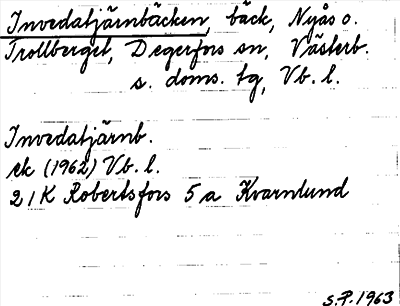 Invedatjärnbäcken, bäck, Nyås o.
Trollberget, Degerfors sn, Västerb.
s. doms. tg, Vb. l.
Invedatjärnb.
ek (1962) Vb. l.
21K Robertsfors 5a Kvarnlund
S.P. 1963